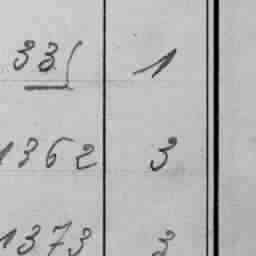 331 1
1362 3
1373 3